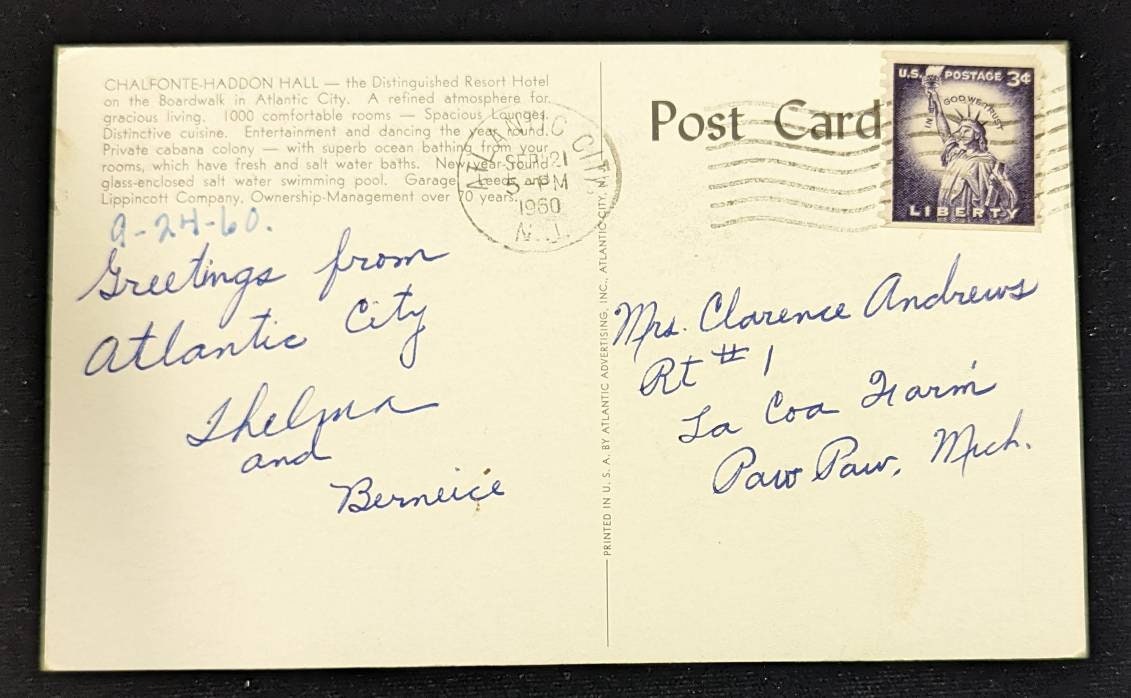 CHALFONTE-HADDON HALL — the Distinguished Resort Hotel
on the Boardwalk in Atlantic City. A refined atmosphere for
gracious living. 1000 comfortable rooms — Spacious Lounges.
Distinctive cuisine. Entertainment and dancing the year round.
Private cabana colony — with superb ocean bathing from your
rooms, which have fresh and salt water baths. New year-round
glass-enclosed salt water swimming pool. Garage. Leeds and
Lippincott Company, Ownership-Management over 70 years.
9-24-60.
Greetings from
Atlantic City
Thelma
and
Berneice
ATLANTIC CITY
SEP 21
5 PM
1960
N.J.
PRINTED IN U. S. A. BY ATLANTIC ADVERTISING, INC., ATLANTIC CITY, N.J.
Post Card
U.S. POSTAGE 3¢
IN GOD WE TRUST
LIBERTY
Mrs. Clarence Andrews
Rt # 1
La Coa Farm
Paw Paw, Mich.